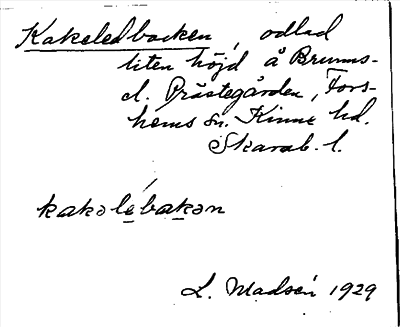 Kakeledbacken, odlad
liten höjd å Brunns-
d. Prästegården, Fors-
hems sn. Kinne hd.
Skarab. l.
kakəlébakən
L. Madsén 1929